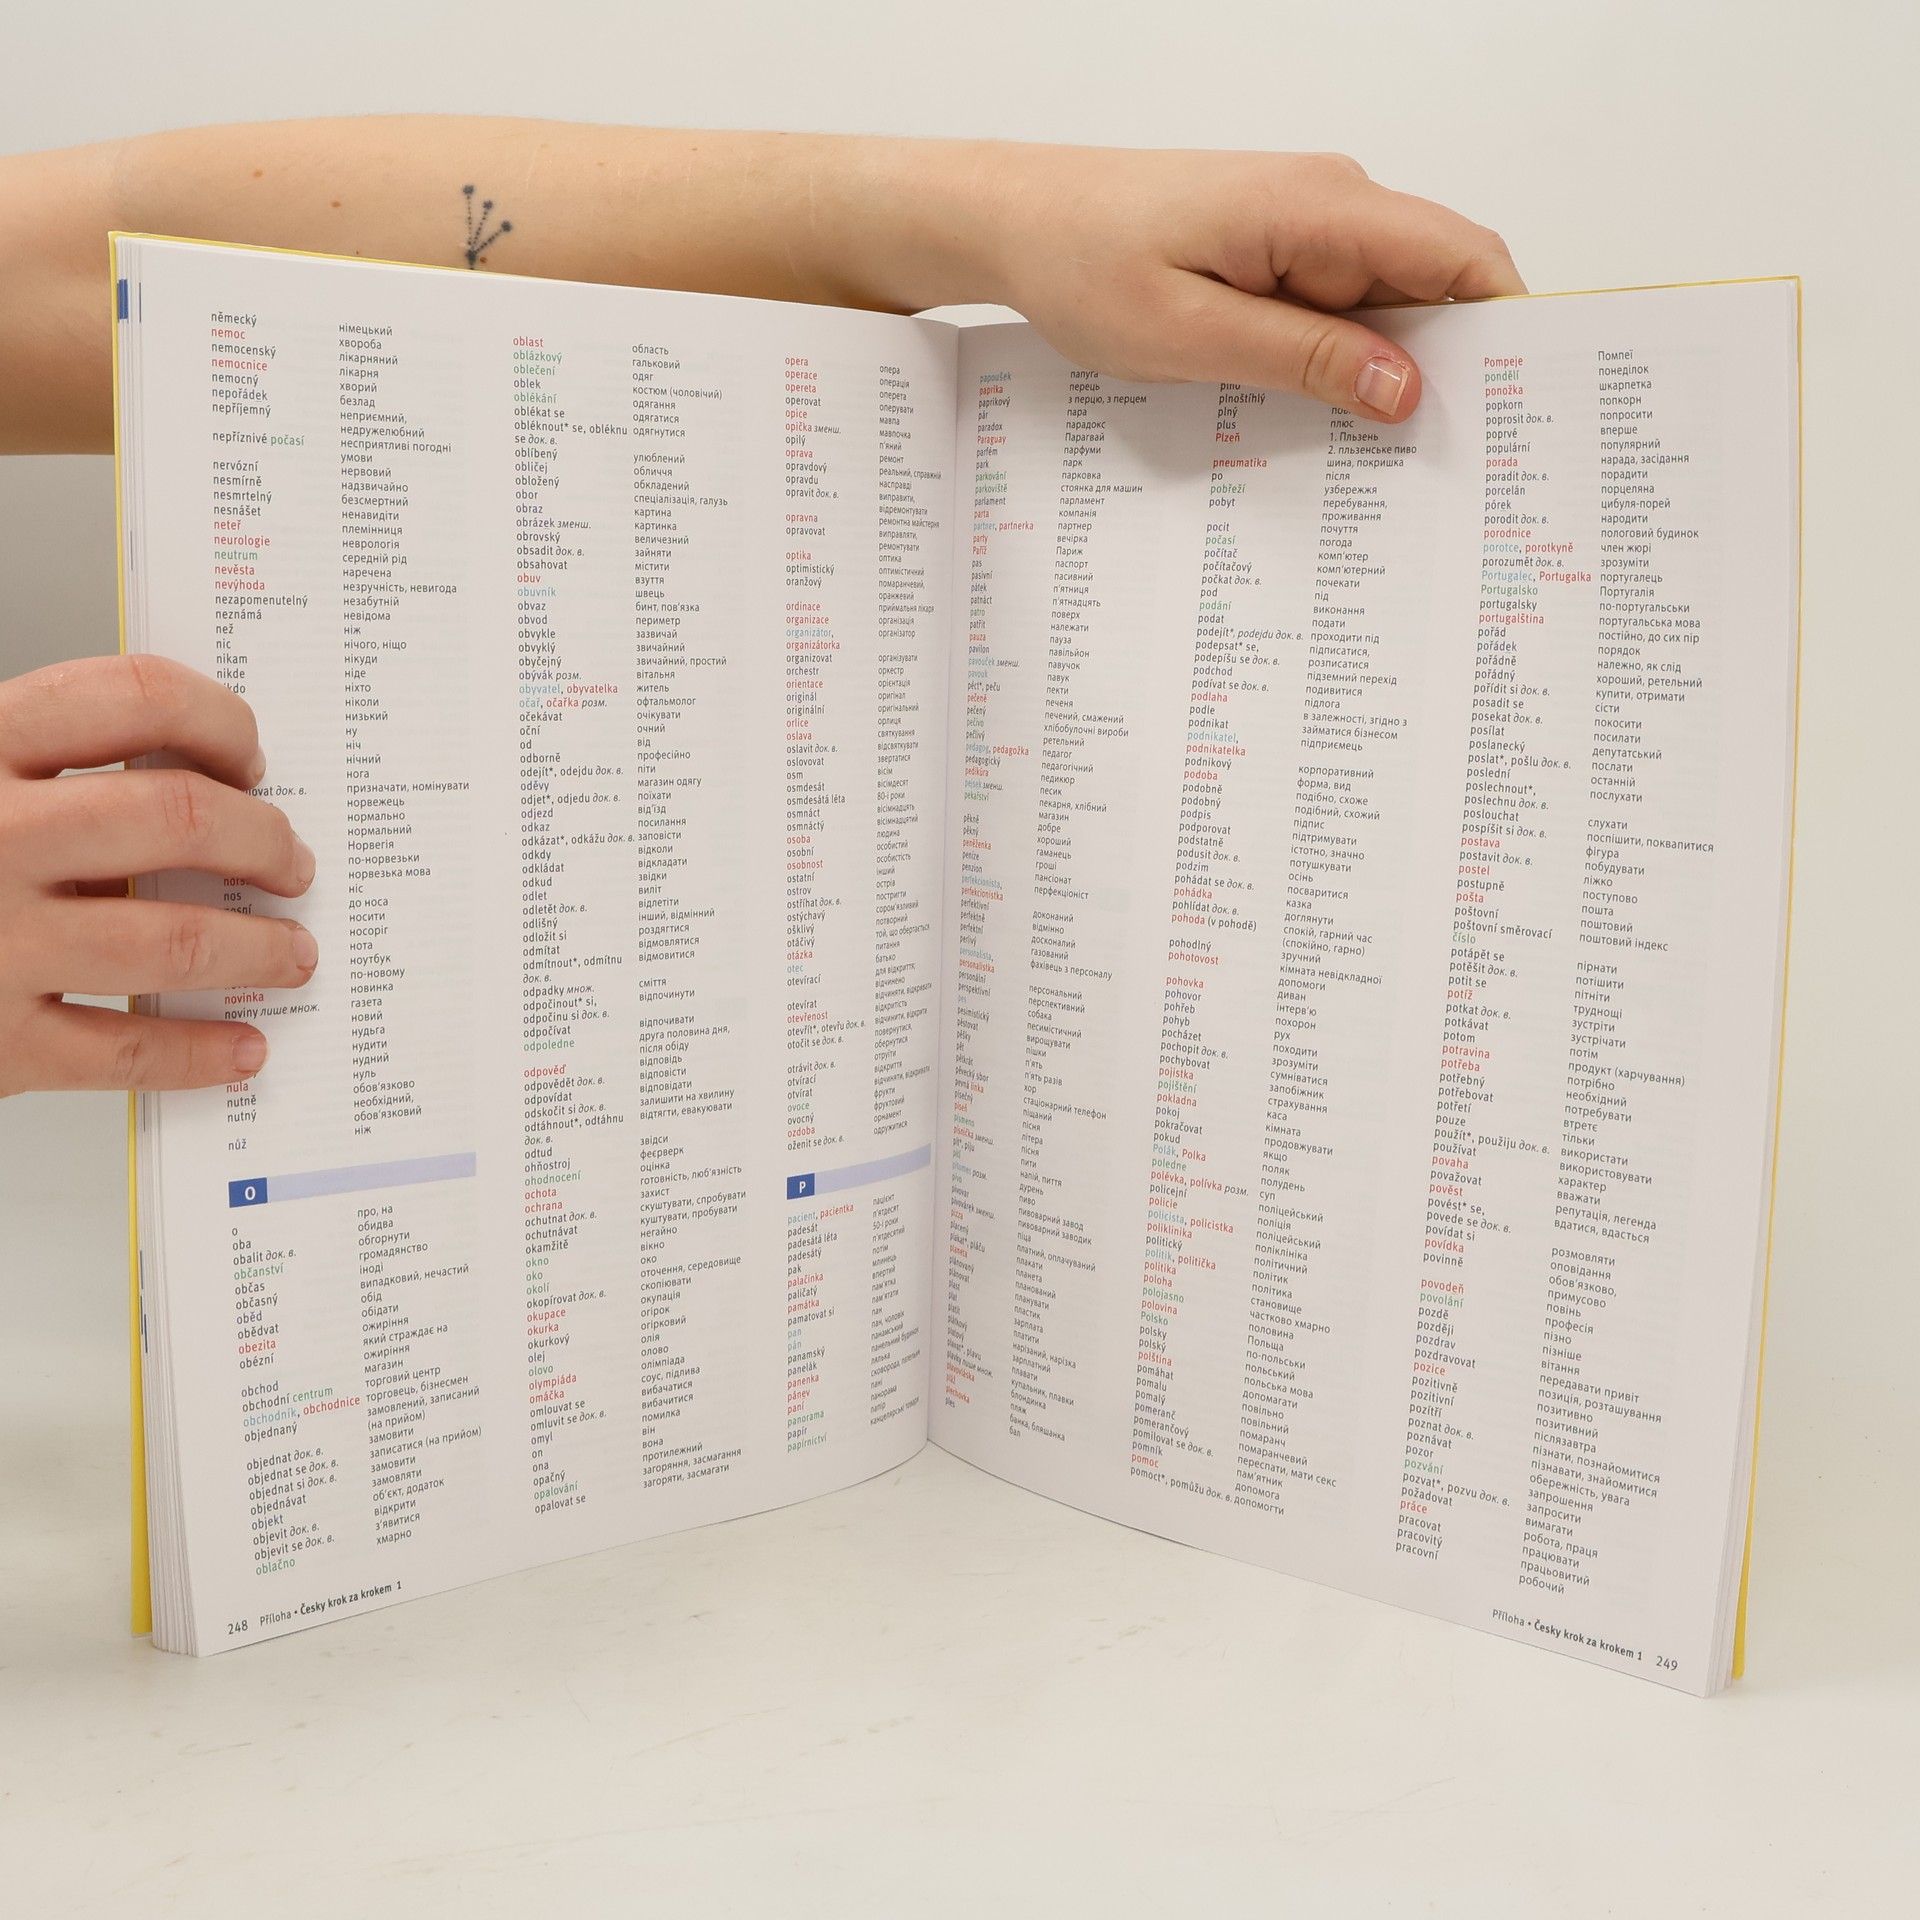 německý німецький
nemoc хвороба
nemocenský лікарняний
nemocnice лікарня
nemocný хворий
nepořádek безлад
nepříjemný неприємний,
недружелюбний
nepříznivé počasí несприятливі погодні
умови
nervózní нервовий
nesmírně надзвичайно
nesmrtelný безсмертний
nesnášet ненавидіти
neteř племінниця
neurologie неврологія
neutrum середній рід
nevěsta наречена
nevýhoda незручність, невигода
nezapomenutelný незабутній
neznámá невідома
než ніж
nic нічого, ніщо
nikam нікуди
nikde ніде
ніхто
ніколи
низький
ну
ніч
нічний
нога
док. в. призначати, номінувати
норвежець
нормально
нормальний
Норвегія
по-норвезьки
норвезька мова
nos ніс
до носа
носити
носоріг
нота
ноутбук
по-новому
novinka новинка
noviny лише множ. газета
новий
нудьга
нудити
нудний
nula нуль
nutně обов'язково
nutný необхідний,
обов'язковий
nůž ніж
O
o про, на
oba обидва
obalit док. в. обгорнути
občanství громадянство
občas іноді
občasný випадковий, нечастий
oběd обід
obědvat обідати
obezita ожиріння
obézní який страждає на
ожиріння
obchod магазин
obchodní centrum торговий центр
obchodník, obchodnice торговець, бізнесмен
objednaný замовлений, записаний
(на прийом)
objednat док. в. замовити
objednat se док. в. записатися (на прийом)
objednat si док. в. замовити
objednávat замовляти
objekt об'єкт, додаток
objevit док. в. відкрити
objevit se док. в. з'явитися
oblačno хмарно
oblast область
oblázkový гальковий
oblečení одяг
oblek костюм (чоловічий)
oblékání одягання
oblékat se одягатися
obléknout* se, obléknu одягнутися
se док. в.
oblíbený улюблений
obličej обличчя
obložený обкладений
obor спеціалізація, галузь
obraz картина
obrázek зменш. картинка
obrovský величезний
obsadit док. в. зайняти
obsahovat містити
obuv взуття
obuvník швець
obvaz бинт, пов'язка
obvod периметр
obvykle зазвичай
obvyklý звичайний
obyčejný звичайний, простий
obývák розм. вітальня
obyvatel, obyvatelka житель
očař, očařka розм. офтальмолог
očekávat очікувати
oční очний
od від
odborně професійно
odejít*, odejdu док. в. піти
oděvy магазин одягу
odjet*, odjedu док. в. поїхати
odjezd від'їзд
odkaz посилання
odkázat*, odkážu док. в. заповісти
odkdy відколи
odkládat відкладати
odkud звідки
odlet виліт
odletět док. в. відлетіти
odlišný інший, відмінний
odložit si роздягтися
odmítat відмовлятися
odmítnout*, odmítnu відмовитися
док. в.
odpadky множ. сміття
odpočinout* si, відпочинути
odpočinu si док. в.
odpočívat відпочивати
odpoledne друга половина дня,
після обіду
odpověď відповідь
odpovědět док. в. відповісти
odpovídat відповідати
odskočit si док. в. залишити на хвилину
odtáhnout*, odtáhnu відтягти, евакуювати
док. в.
odtud звідси
ohňostroj феєрверк
ohodnocení оцінка
ochota готовність, люб'язність
ochrana захист
ochutnat док. в. скуштувати, спробувати
ochutnávat куштувати, пробувати
okamžitě негайно
okno вікно
oko око
okolí оточення, середовище
okopírovat док. в. скопіювати
okupace окупація
okurka огірок
okurkový огірковий
olej олія
olovo олово
olympiáda олімпіада
omáčka соус, підлива
omlouvat se вибачатися
omluvit se док. в. вибачитися
omyl помилка
on він
ona вона
opačný протилежний
opalování загоряння, засмагання
opalovat se загоряти, засмагати
opera опера
operace операція
opereta оперета
operovat оперувати
opice мавпа
opička зменш. мавпочка
opilý п'яний
oprava ремонт
opravdový реальний, справжній
opravdu насправді
opravit док. в. виправити,
відремонтувати
opravna ремонтна майстерня
opravovat виправляти,
ремонтувати
optika оптика
optimistický оптимістичний
oranžový помаранчевий,
оранжевий
ordinace приймальня лікаря
organizace організація
organizátor, організатор
organizátorka
organizovat організувати
orchestr оркестр
orientace орієнтація
originál оригінал
originální оригінальний
orlice орлиця
oslava святкування
oslavit док. в. відсвяткувати
oslovovat звертатися
osm вісім
osmdesát вісімдесят
osmdesátá léta 80-і роки
osmnáct вісімнадцять
osmnáctý вісімнадцятий
osoba людина
osobní особистий
osobnost особистість
ostatní інший
ostrov острів
ostříhat док. в. постригти
ostýchavý сором'язливий
ošklivý потворний
otáčivý той, що обертається
otázka питання
otec батько
otevírací для відкриття;
відчинено
otevírat відчиняти, відкривати
otevřenost відкритість
otevřít*, otevřu док. в. відчинити, відкрити
otočit se док. в. повернутися,
обернутися
otrávit док. в. отруїти
otvírací відкриття
otvírat відчиняти, відкривати
ovoce фрукти
ovocný фруктовий
ozdoba орнамент
oženit se док. в. одружитися
P
pacient, pacientka пацієнт
padesát п'ятдесят
padesátá léta 50-і роки
padesátý п'ятдесятий
pak потім
palačinka млинець
paličatý впертий
památka пам'ятка
pamatovat si пам'ятати
pan пан
pán пан, чоловік
panamský панамський
panelák панельний будинок
panenka лялька
pánev сковорода, пательня
paní пані
panorama панорама
papír папір
papírnictví канцелярські товари
248 Příloha • Česky krok za krokem 1
papoušek папуга
paprika перець
paprikový з перцю, з перцем
pár пара
paradox парадокс
Paraguay Парагвай
parfém парфуми
park парк
parkování парковка
parkoviště стоянка для машин
parlament парламент
parta компанія
partner, partnerka партнер
party вечірка
Paříž Париж
pas паспорт
pasivní пасивний
pátek п'ятниця
patnáct п'ятнадцять
patro поверх
patřit належати
pauza пауза
pavilon павільйон
pavouček зменш. павучок
pavouk павук
péct*, peču пекти
pečeně печеня
pečený печений, смажений
pečivo хлібобулочні вироби
pečlivý ретельний
pedagog, pedagožka педагог
pedagogický педагогічний
pedikúra педикюр
pejsek зменш. песик
pekařství пекарня, хлібний
магазин
pěkně добре
pěkný хороший
peněženka гаманець
peníze гроші
penzion пансіонат
perfekcionista, перфекціоніст
perfekcionistka
perfektivní доконаний
perfektně відмінно
perfektní досконалий
perlivý газований
personalista, фахівець з персоналу
personalistka
personální персональний
perspektivní перспективний
pes собака
pesimistický песимістичний
pěstovat вирощувати
pěšky пішки
pět п'ять
pětkrát п'ять разів
pěvecký sbor хор
pevná linka стаціонарний телефон
písečný піщаний
píseň пісня
písmeno літера
písnička зменш. пісня
pít*, piju пити
pití напій, пиття
pitomec розм. дурень
pivo пиво
pivovar пивоварний завод
pivovárek зменш. пивоварний заводик
pizza піца
placený платний, оплачуваний
plakat*, pláču плакати
planeta планета
plánovaný планований
plánovat планувати
plast пластик
plat зарплата
platit платити
plátkový нарізаний, нарізка
platový зарплатний
plavat*, plavu плавати
plavky лише множ. купальник, плавки
plavovláska блондинка
pláž пляж
plechovka банка, бляшанка
ples бал
plno
plnoštíhlý
plný
plus плюс
Plzeň 1. Пльзень
2. пльзенське пиво
pneumatika шина, покришка
po після
pobřeží узбережжя
pobyt перебування,
проживання
pocit почуття
počasí погода
počítač комп'ютер
počítačový комп'ютерний
počkat док. в. почекати
pod під
podání виконання
podat подати
podejít*, podejdu док. в. проходити під
podepsat* se, підписатися,
podepíšu se док. в. розписатися
podchod підземний перехід
podívat se док. в. подивитися
podlaha підлога
podle в залежності, згідно з
podnikat займатися бізнесом
podnikatel, підприємець
podnikatelka
podnikový корпоративний
podoba форма, вид
podobně подібно, схоже
podobný подібний, схожий
podpis підпис
podporovat підтримувати
podstatně істотно, значно
podusit док. в. потушкувати
podzim осінь
pohádat se док. в. посваритися
pohádka казка
pohlídat док. в. доглянути
pohoda (v pohodě) спокій, гарний час
(спокійно, гарно)
pohodlný зручний
pohotovost кімната невідкладної
допомоги
pohovka диван
pohovor інтерв'ю
pohřeb похорон
pohyb рух
pocházet походити
pochopit док. в. зрозуміти
pochybovat сумніватися
pojistka запобіжник
pojištění страхування
pokladna каса
pokoj кімната
pokračovat продовжувати
pokud якщо
Polák, Polka поляк
poledne полудень
polévka, polívka розм. суп
policejní поліцейський
policie поліція
policista, policistka поліцейський
poliklinika поліклініка
politický політичний
politik, politička політик
politika політика
poloha становище
polojasno частково хмарно
polovina половина
Polsko Польща
polsky по-польськи
polský польський
polština польська мова
pomáhat допомагати
pomalu повільно
pomalý повільний
pomeranč помаранч
pomerančový помаранчевий
pomilovat se док. в. переспати, мати секс
pomník пам'ятник
pomoc допомога
pomoct*, pomůžu док. в. допомогти
Pompeje Помпеї
pondělí понеділок
ponožka шкарпетка
popkorn попкорн
poprosit док. в. попросити
poprvé вперше
populární популярний
porada нарада, засідання
poradit док. в. порадити
porcelán порцеляна
pórek цибуля-порей
porodit док. в. народити
porodnice пологовий будинок
porotce, porotkyně член жюрі
porozumět док. в. зрозуміти
Portugalec, Portugalka португалець
Portugalsko Португалія
portugalsky по-португальськи
portugalština португальська мова
pořád постійно, до сих пір
pořádek порядок
pořádně належно, як слід
pořádný хороший, ретельний
pořídit si док. в. купити, отримати
posadit se сісти
posekat док. в. покосити
posílat посилати
poslanecký депутатський
poslat*, pošlu док. в. послати
poslední останній
poslechnout*, послухати
poslechnu док. в.
poslouchat слухати
pospíšit si док. в. поспішити, поквапитися
postava фігура
postavit док. в. побудувати
postel ліжко
postupně поступово
pošta пошта
poštovní поштовий
poštovní směrovací поштовий індекс
číslo
potápět se пірнати
potěšit док. в. потішити
potit se пітніти
potíž труднощі
potkat док. в. зустріти
potkávat зустрічати
potom потім
potravina продукт (харчування)
potřeba потрібно
potřebný необхідний
potřebovat потребувати
potřetí втретє
pouze тільки
použít*, použiju док. в. використати
používat використовувати
povaha характер
považovat вважати
pověst репутація, легенда
povést* se, вдатися, вдасться
povede se док. в.
povídat si розмовляти
povídka оповідання
povinně обов'язково,
примусово
povodeň повінь
povolání професія
pozdě пізно
později пізніше
pozdrav вітання
pozdravovat передавати привіт
pozice позиція, розташування
pozitivně позитивно
pozitivní позитивний
pozítří післязавтра
poznat док. в. пізнати, познайомитися
poznávat пізнавати, знайомитися
pozor обережність, увага
pozvání запрошення
pozvat*, pozvu док. в. запросити
požadovat вимагати
práce робота, праця
pracovat працювати
pracovitý працьовитий
pracovní робочий
Příloha • Česky krok za krokem 1 249